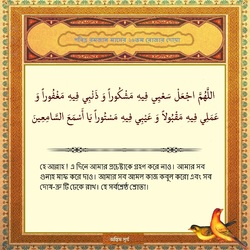 পবিত্র রমজান মাসের ২৬তম রোজার দোয়া
اللَّهُمَّ اجْعَلْ سَعْيِي فِيهِ مَشْكُوراً وَ ذَنْبِي فِيهِ مَغْفُوراً وَ
عَمَلِي فِيهِ مَقْبُولاً وَ عَيْبِي فِيهِ مَسْتُوراً يَا أَسْمَعَ السَّامِعِينَ
হে আল্লাহ! এ দিনে আমার প্রচেষ্টাকে গ্রহণ করে নাও। আমার সব
গুনাহ মাফ করে দাও। আমার সব আমল কাজ কবুল করো এবং সব
দোষ-ত্রুটি ঢেকে রাখ। হে সর্বশ্রেষ্ঠ শ্রোতা।